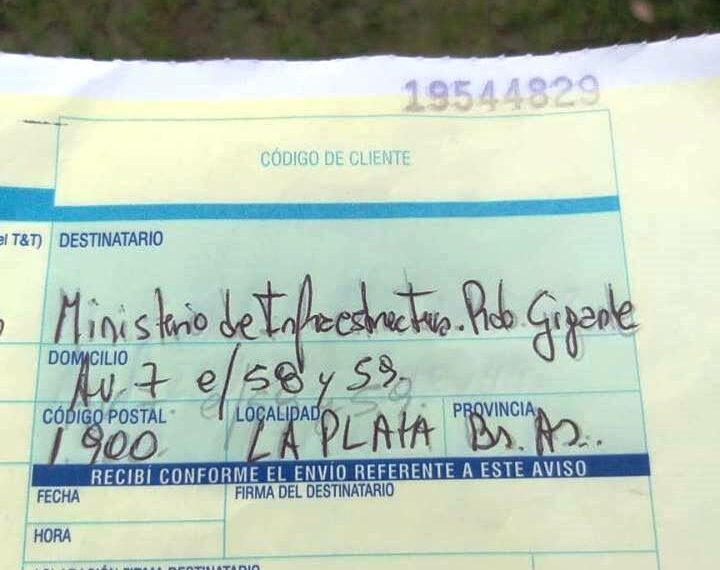 19544829
CÓDIGO DE CLIENTE
el T&T) DESTINATARIO
Ministerio de Infraestructura. Rob. Gigante
DOMICILIO
Av. 7 e/ 58 y 59.
CÓDIGO POSTAL LOCALIDAD PROVINCIA
1900 LA PLATA Bs. As..
RECIBÍ CONFORME EL ENVÍO REFERENTE A ESTE AVISO
FECHA FIRMA DEL DESTINATARIO
HORA
ACLARACIÓN FIRMA DESTINATARIO